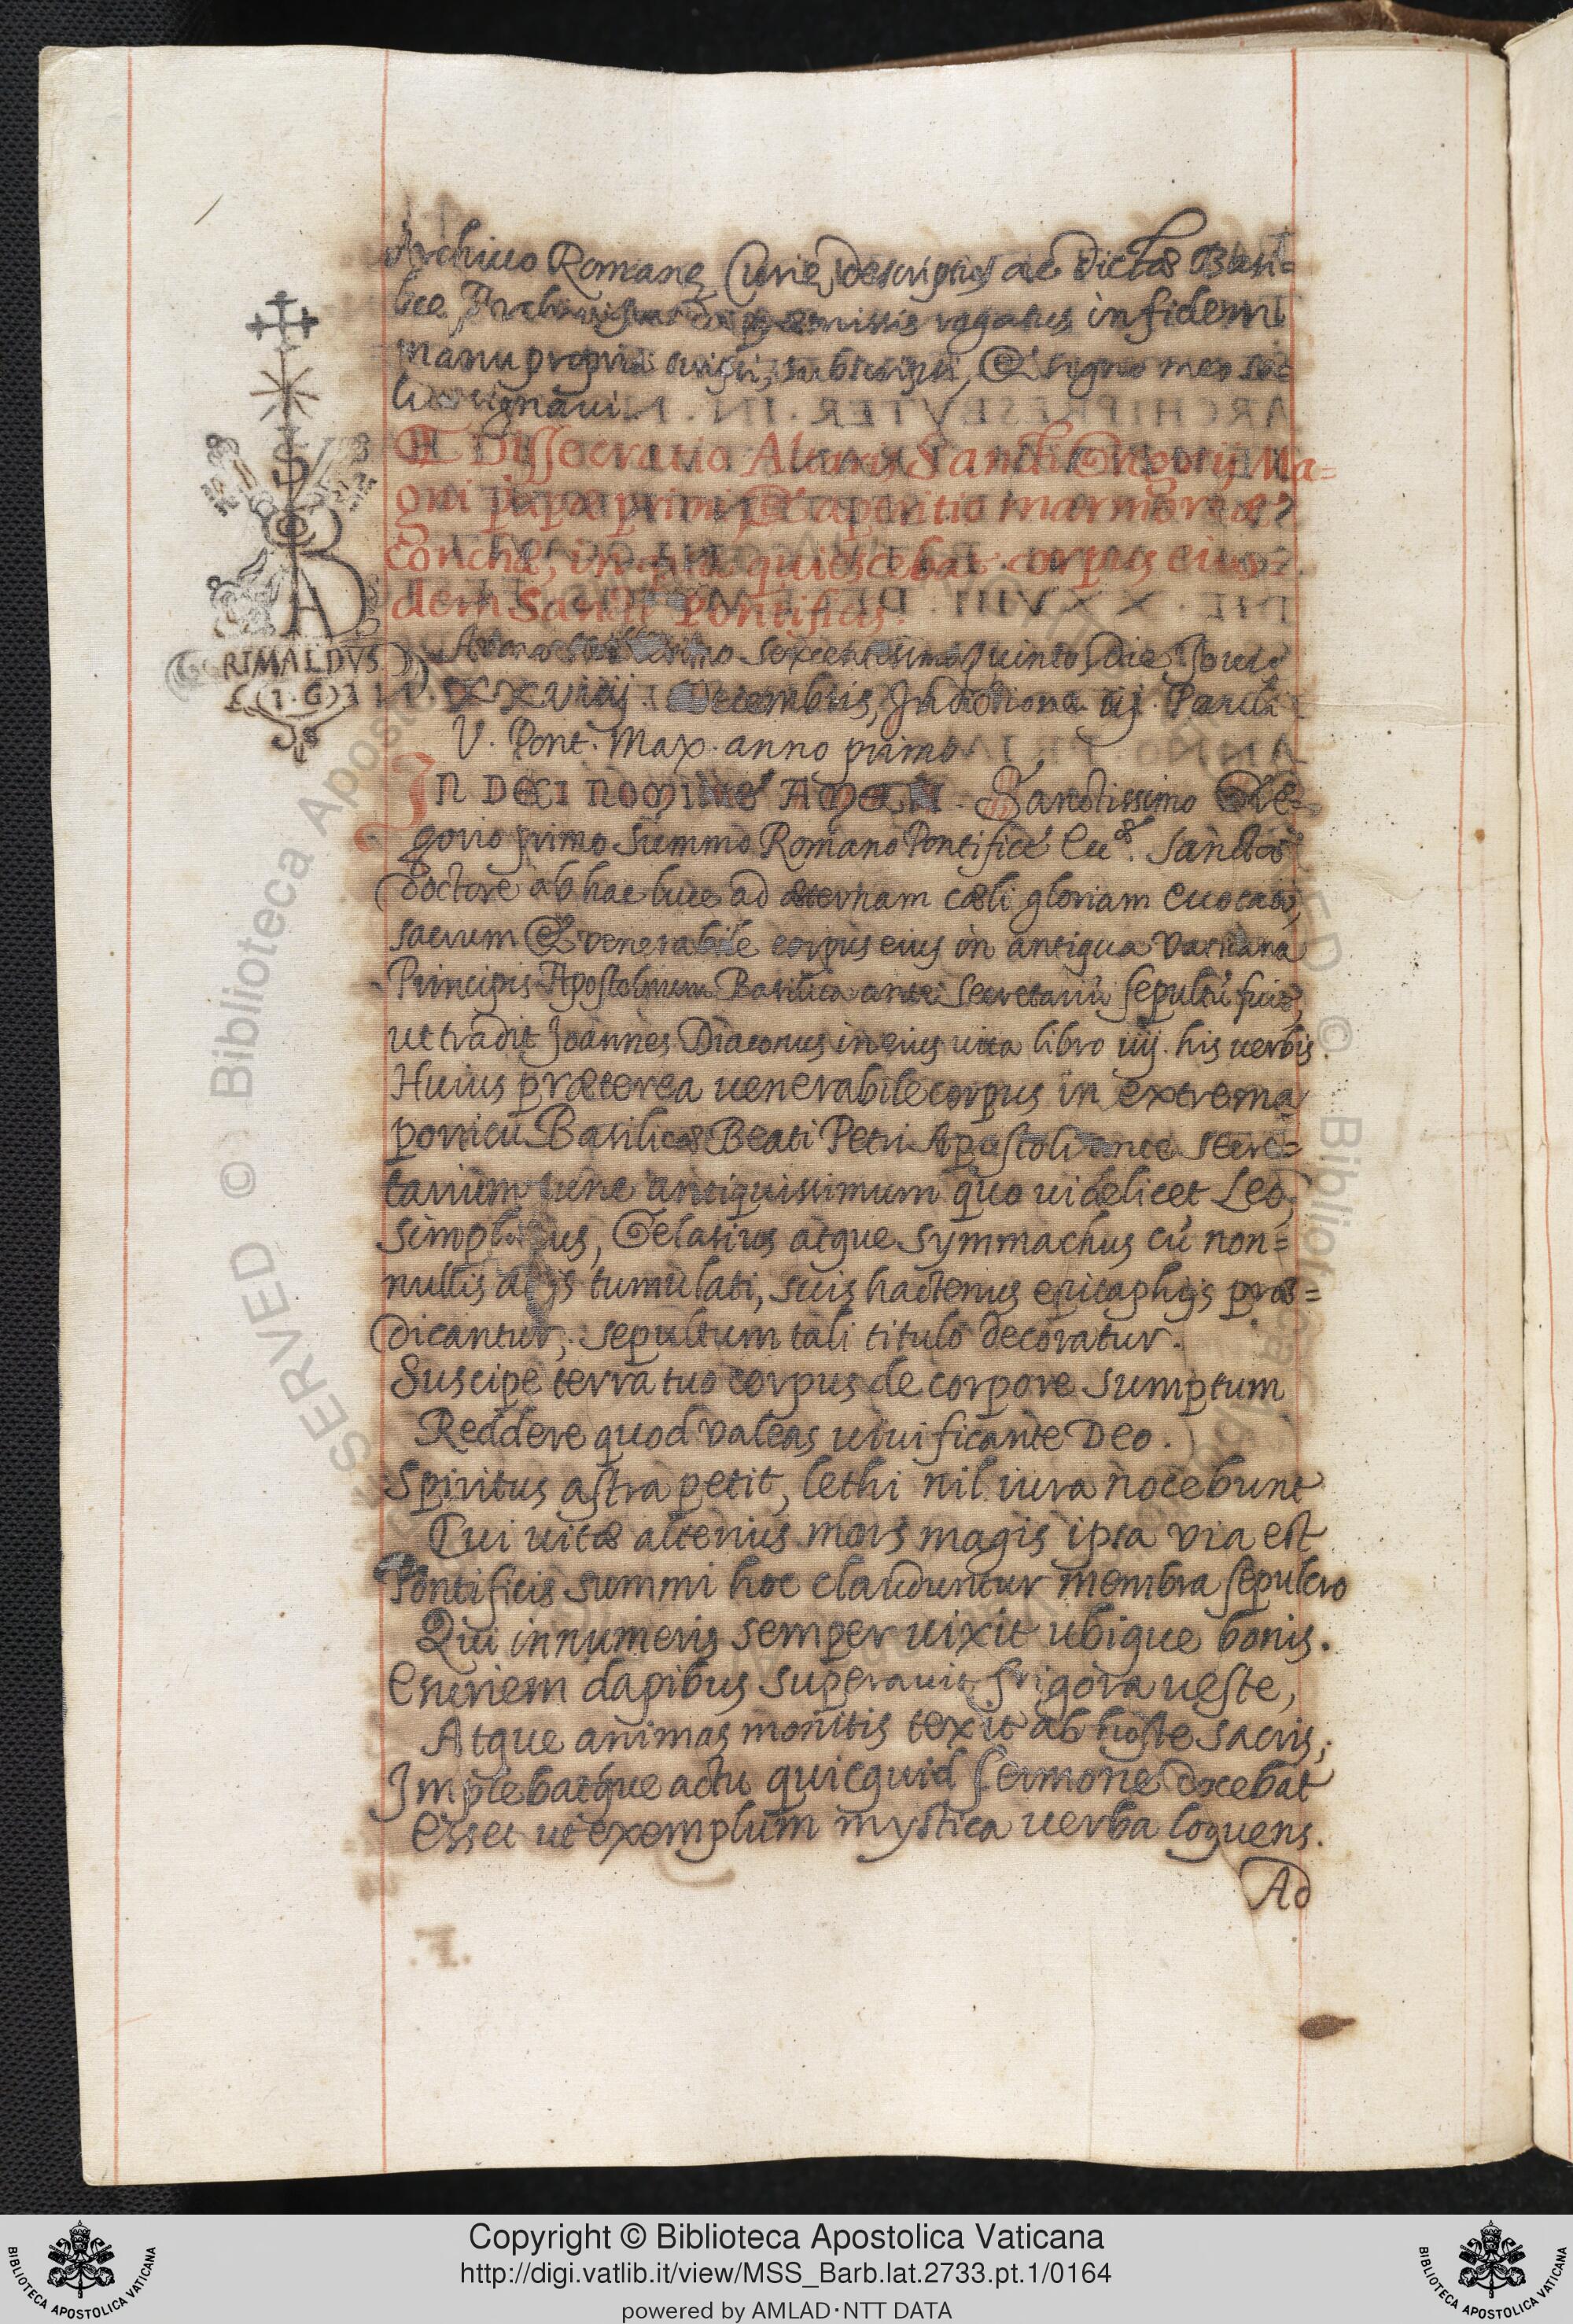 Archiuo Romanę Curię descriptus ac dictæ Basi=
licæ Archiuista de præmissis rogatus in fidem
manu propria scripsi, subscripsi, & signo meo so=
lito signaui.
Dissecratio Altaris Sancti Gregorij Ma=
gni papæ primi, & apertio marmoreæ
conchæ, in qua quiescebat corpus eius=
dem Sancti Pontificis.
S
B
A
GRIMALDVS
(I·G)
Anno Millesimo Sexcentesimo quinto, Die Jouis
XXViiij Decembris, Indictione iij. Pauli
V. Pont. Max. anno primo
In Dei nomine Amen. Sanctissimo Gre=
gorio primo Summo Romano Pontifice Ecc. Sanctæ
doctore ab hac luce ad æternam cæli gloriam euocato,
sacrum & venerabile corpus eius in antiqua Vaticana
Principis Apostolorum Basilica ante Secretariũ sepultũ fuit,
ut tradit Joannes Diaconus in eius uita libro iiij. his uerbis.
Huius præterea uenerabile corpus in extrema
porticu Basilicæ Beati Petri Apostoli ante secre=
tarium tunc antiquissimum quo uidelicet Leo,
Simplicius, Gelasius atque Symmachus cũ non=
nullis alijs tumulati, suis hactenus epitaphijs præ=
dicantur, sepultum tali titulo decoratur.
Suscipe terra tuo corpus de corpore sumptum
Reddere quod valeas uiuificante Deo.
Spiritus astra petit, lethi nil iura nocebunt
Cui uitæ alterius mors magis ipsa via est
Pontificis summi hoc clauduntur membra sepulcro
Qui innumeris semper uixit ubique bonis.
Esuriem dapibus superauit, frigora ueste,
Atque animas monitis texit ab hoste sacris;
Implebatque actu quicquid sermone docebat
Esset ut exemplum mystica uerba loquens.
Ad
Copyright © Biblioteca Apostolica Vaticana
http://digi.vatlib.it/view/MSS_Barb.lat.2733.pt.1/0164
powered by AMLAD·NTT DATA
BIBLIOTECA APOSTOLICA VATICANA
BIBLIOTECA APOSTOLICA VATICANA